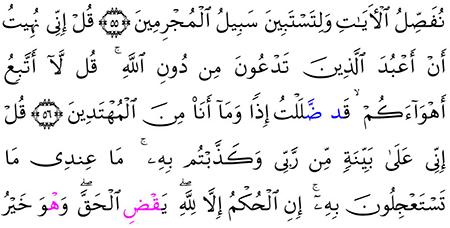 نُفَصِّلُ الْأٓيَـٰتِ وَلِتَسْتَبِينَ سَبِيلُ الْمُجْرِمِينَ ۝٥٥ قُلْ إِنِّى نُهِيتُ
أَنْ أَعْبُدَ الَّذِينَ تَدْعُونَ مِن دُونِ اللَّهِ ۚ قُل لَّآ أَتَّبِعُ
أَهْوَآءَكُمْ ۙ قَد ضَّلَلْتُ إِذًا وَمَآ أَنَا۠ مِنَ الْمُهْتَدِينَ ۝٥٦ قُلْ
إِنِّى عَلَىٰ بَيِّنَةٍ مِّن رَّبِّى وَكَذَّبْتُم بِهِۦ ۚ مَا عِندِى مَا
تَسْتَعْجِلُونَ بِهِۦٓ ۚ إِنِ الْحُكْمُ إِلَّا لِلَّهِ ۖ يَقْضِ الْحَقَّ ۖ وَهْوَ خَيْرُ